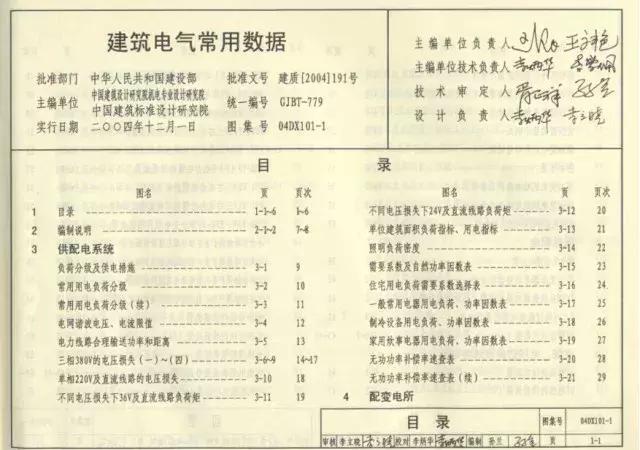 建筑电气常用数据
批准部门 中华人民共和国建设部 批准文号 建质[2004]191号
主编单位 中国建筑设计研究院机电专业设计研究院 中国建筑标准设计研究院 统一编号 GJBT-779
实行日期 二〇〇四年十二月一日 图集号 04DX101-1
主编单位负责人
主编单位技术负责人
技术审定人
设计负责人
目录
图名 页 页次
1 目录 1-1~6 1~6
2 编制说明 2-1~2 7~8
3 供配电系统
负荷分级及供电措施 3-1 9
常用用电负荷分级 3-2 10
常用用电负荷分级(续) 3-3 11
电网谐波电压、电流限值 3-4 12
电力线路合理输送功率和距离 3-5 13
三相380V的电压损失(一)~(四) 3-6~9 14~17
单相220V及直流线路的电压损失 3-10 18
不同电压损失下36V及直流线路负荷矩 3-11 19
图名 页 页次
不同电压损失下24V及直流线路负荷矩 3-12 20
单位建筑面积负荷指标、用电指标 3-13 21
照明负荷密度 3-14 22
需要系数及自然功率因数表 3-15 23
住宅用电负荷需要系数选择表 3-16 24
一般常用电器用电负荷、功率因数表 3-17 25
制冷设备用电负荷、功率因数表 3-18 26
家用炊事电器用电负荷、功率因数表 3-19 27
无功功率补偿率速查表 3-20 28
无功功率补偿率速查表(续) 3-21 29
4 配变电所
目录 图集号 04DX101-1
审核 李立晓 校对 李炳华 编制 孙兰 页 1-1